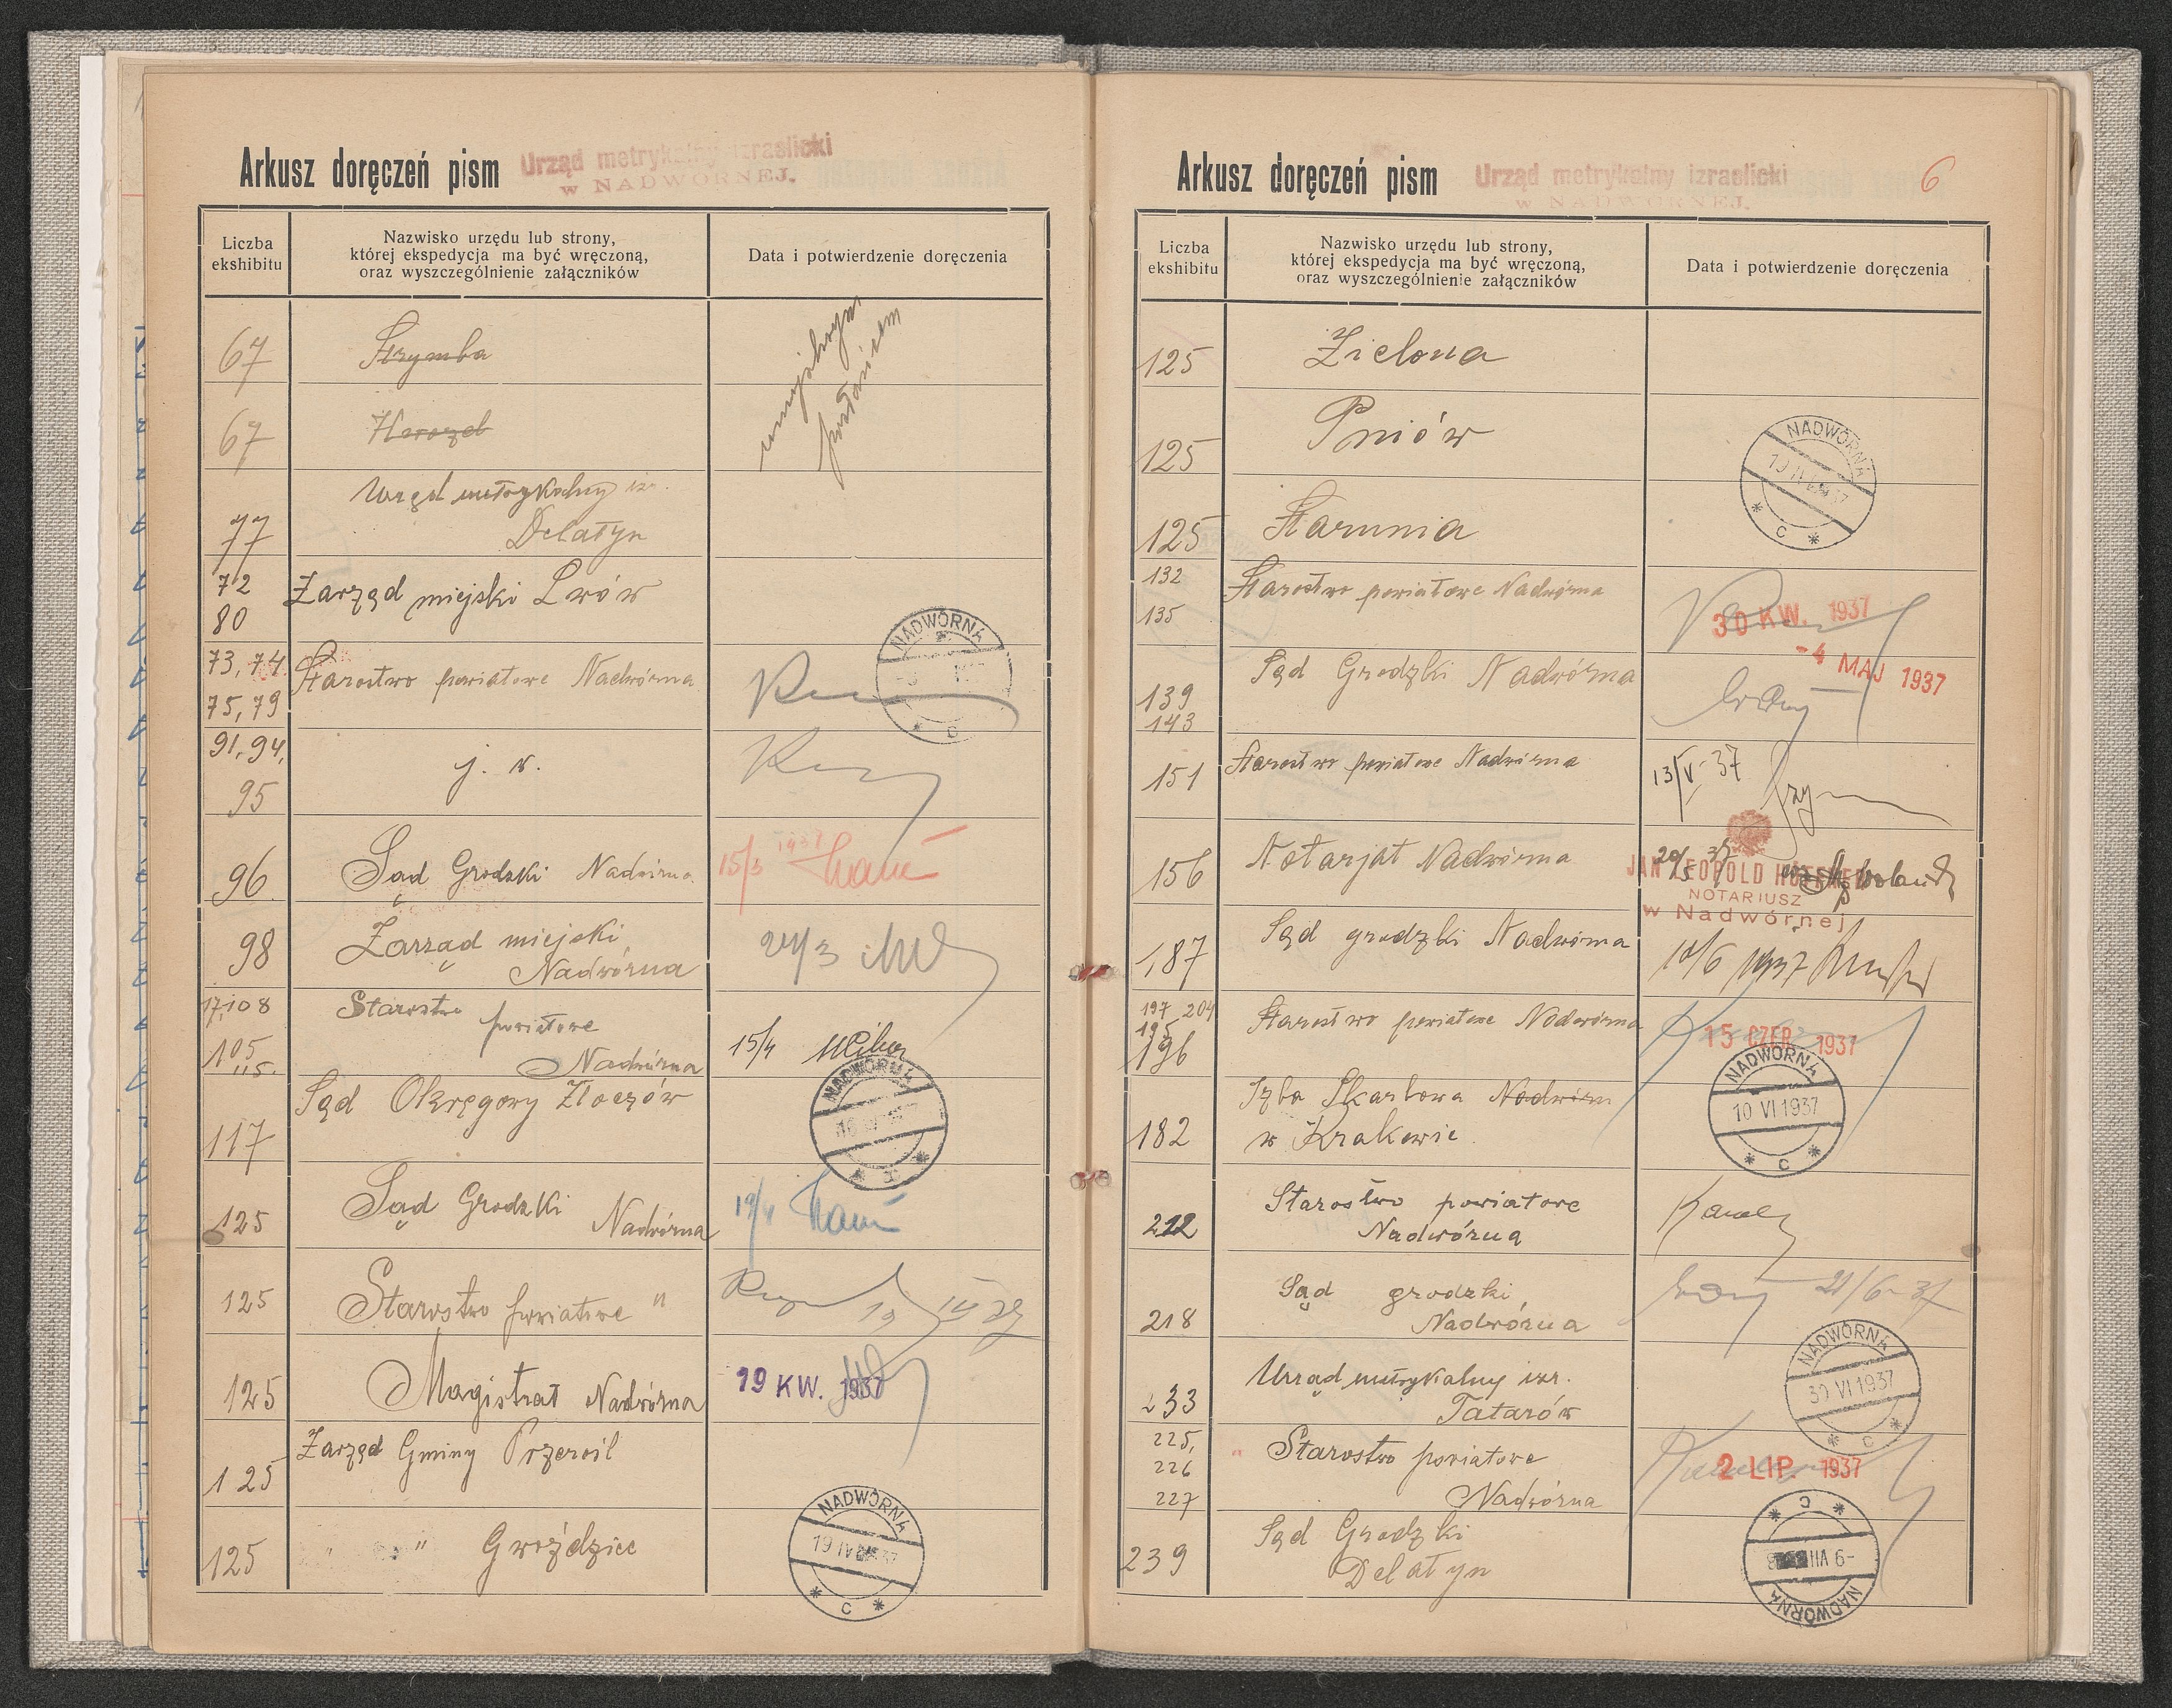 Arkusz doręczeń pism
Urząd metrykalny izraelicki
w NADWÓRNEJ.
Liczba
ekshibitu
Nazwisko urzędu lub strony,
której ekspedycja ma być wręczoną,
oraz wyszczególnienie załączników
Data i potwierdzenie doręczenia
67 Strymba
67
77 Urząd metrykalny izr.
Delatyn
72
80
Zarząd miejski Lwów
NADWÓRNA
73, 74.
75, 79
Starostwo powiatowe Nadwórna
91, 94,
95
j. w.
96. Sąd Grodzki Nadwórna 15/3 1937
98 Zarząd miejski
Nadwórna
24/3
108
105
115.
Starostwo powiatowe
Nadwórna
15/4
117 Sąd Okręgowy Złoczów
NADWÓRNA
125 Sąd Grodzki Nadwórna 19/4
125 Starostwo powiatowe "
125 Magistrat Nadwórna 19 KW. 1937
125 Zarząd Gminy Przerośl
125 " " Gwoździec
NADWÓRNA
C
Arkusz doręczeń pism
Urząd metrykalny izraelicki
w NADWÓRNEJ.
6
Liczba
ekshibitu
Nazwisko urzędu lub strony,
której ekspedycja ma być wręczoną,
oraz wyszczególnienie załączników
Data i potwierdzenie doręczenia
125 Zielona
125 Pniów
NADWÓRNA
C
125 Starunia
132
135
Starostwo powiatowe Nadwórna
30 KW. 1937
139
143
Sąd Grodzki Nadwórna
-4 MAJ 1937
151 Starostwo powiatowe Nadwórna 13/V-37
156 Notarjat Nadwórna 20/5 37
JAN LEOPOLD
NOTARIUSZ
w Nadwórnej
187 Sąd grodzki Nadwórna 10/6 1937
197 204
195
196
Starostwo powiatowe Nadwórna
15 CZER. 1937
182 Izba Skarbowa Nadwórn
w Krakowie
NADWÓRNA
10 VI 1937
C
212 Starostwo powiatowe
Nadwórna
218 Sąd grodzki
Nadwórna
21/6-37
233 Urząd metrykalny izr.
Tatarów
NADWÓRNA
30 VI 1937
C
225,
226
227
Starostwo powiatowe
Nadwórna
2 LIP. 1937
239 Sąd Grodzki
Delatyn
NADWÓRNA
-9 VII
C